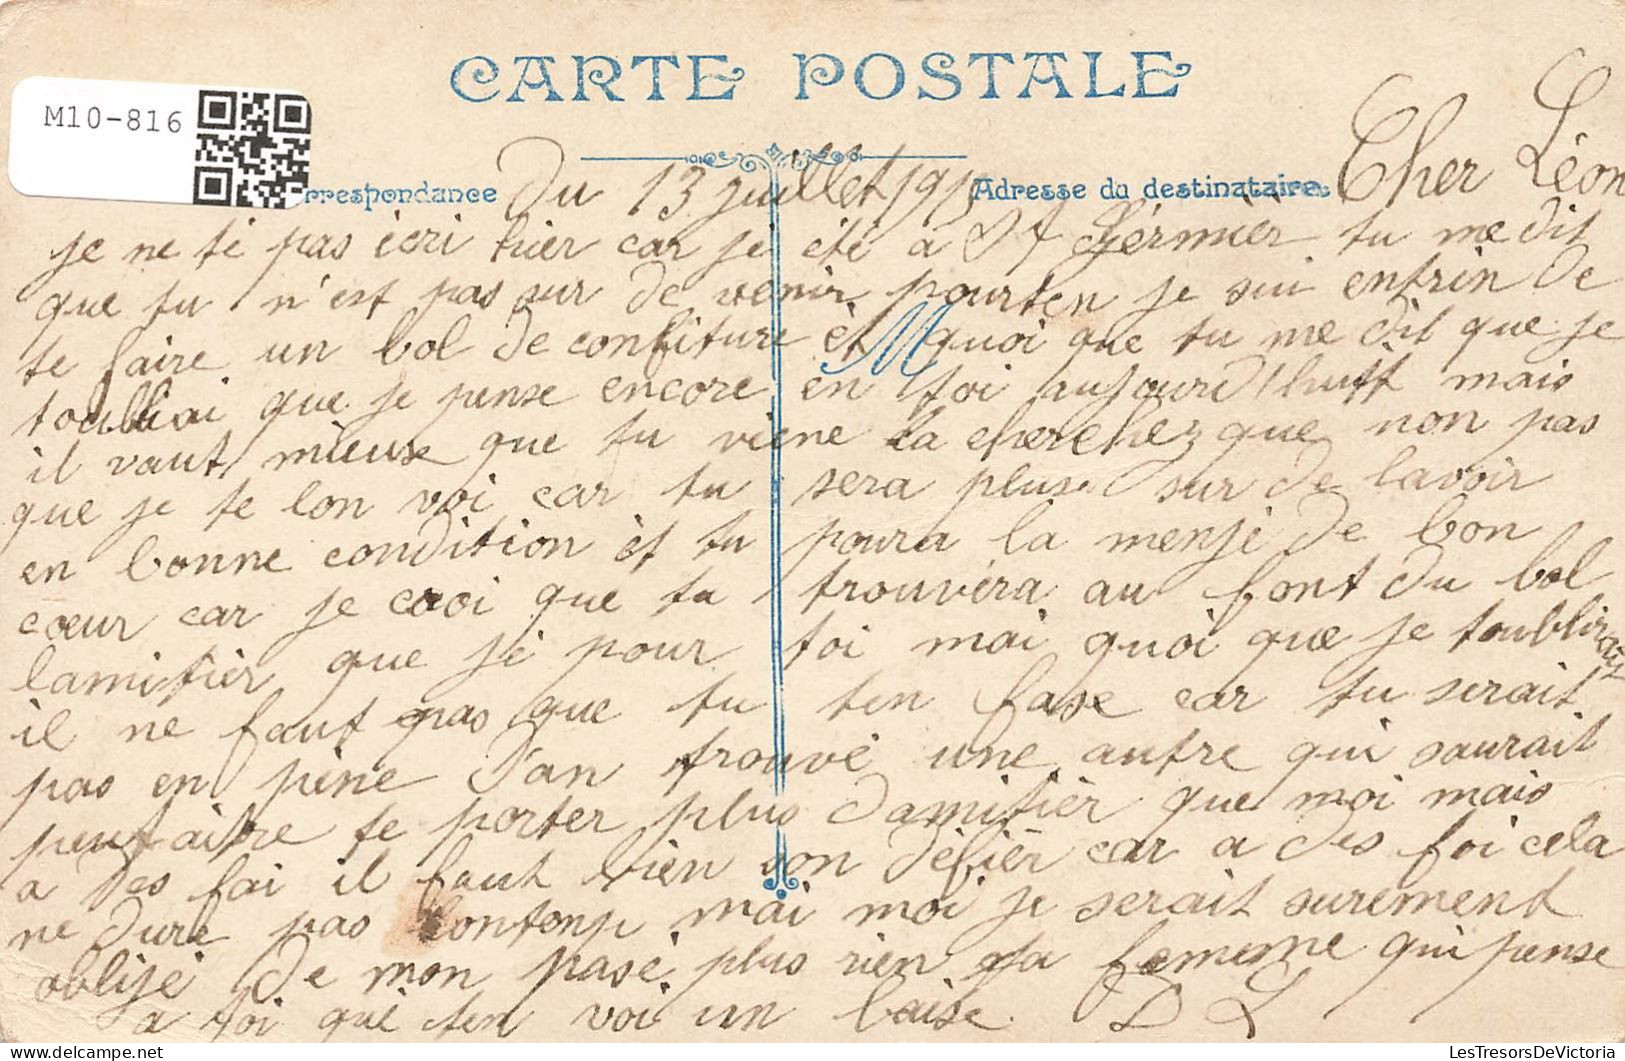 M10-816
CARTE POSTALE
rrespondance
Adresse du destinataire
Du 13 juillet 191 Cher Léon
je ne té pas écri hier car jé été a St tu me dit
que tu n'est pas sur de venir pourten je sui entrin de
te faire un bol de confiture èt quoi que tu me dit que je
toubliai que je pense encore en toi aujourd'huit mais
il vaut mieux que tu viene la cherchez que non pas
que je te lon voi car tu sera plus sur de lavoir
en bonne condition èt tu poura la menjé de bon
cœur car je croi que tu trouvéra au font du bol
lamitièr que jé pour toi mai quoi que je toublirait
il ne faut pas que tu ten fase car tu serait
pas en pène d'an trouvé une autre qui saurait
peutaitre te porter plus damitièr que moi mais
a des foi il faut bien son défièr car a des foi cela
ne dure pas lontemp mai moi je serait surement
oblijé de mon pasé plus rien ta fememe qui pense
a toi qui ten voi un baise D L
M
LesTresorsDeVictoria